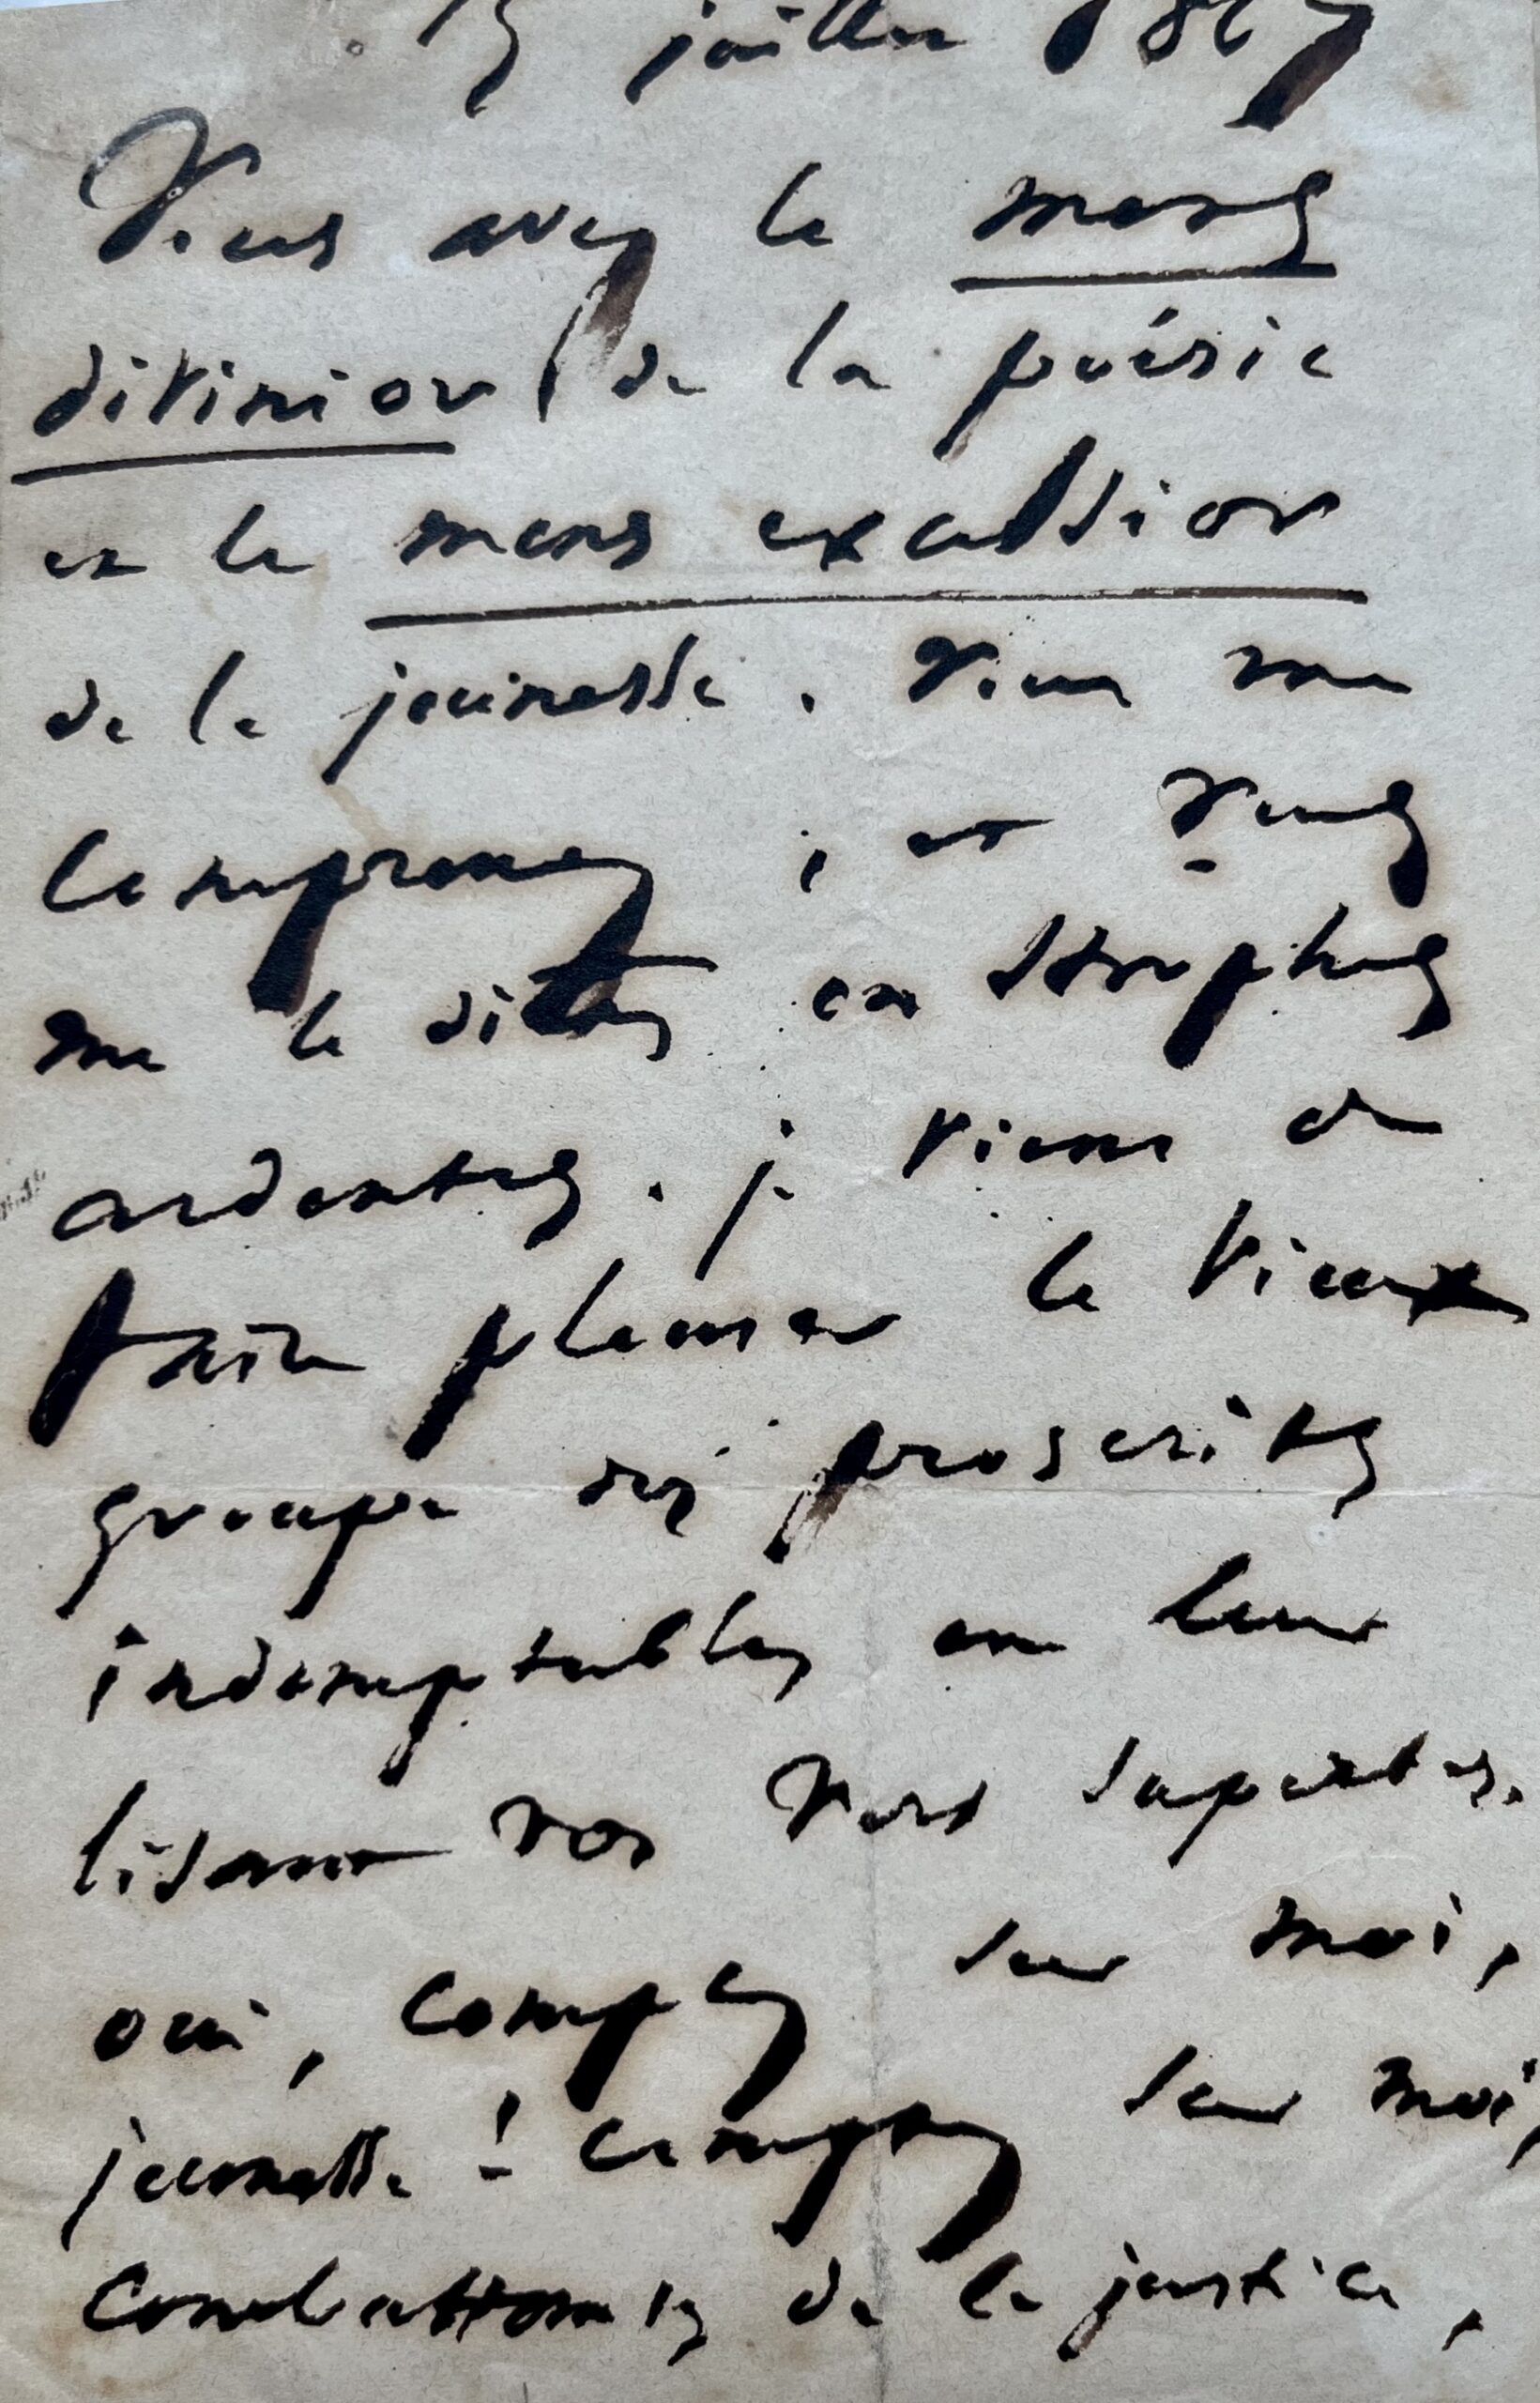 juillet 1867
Vous avez le mens
divinior de la poésie
et le mens excelsior
de la jeunesse. Vous me
comprenez ; et vous
me le dites en strophes
ardentes. je viens de
faire pleurer le vieux
groupe des proscrits
indomptables en leur
lisant vos vers superbes.
oui, comptez sur moi,
jeunesse ! comptez sur moi,
combattants de la justice,